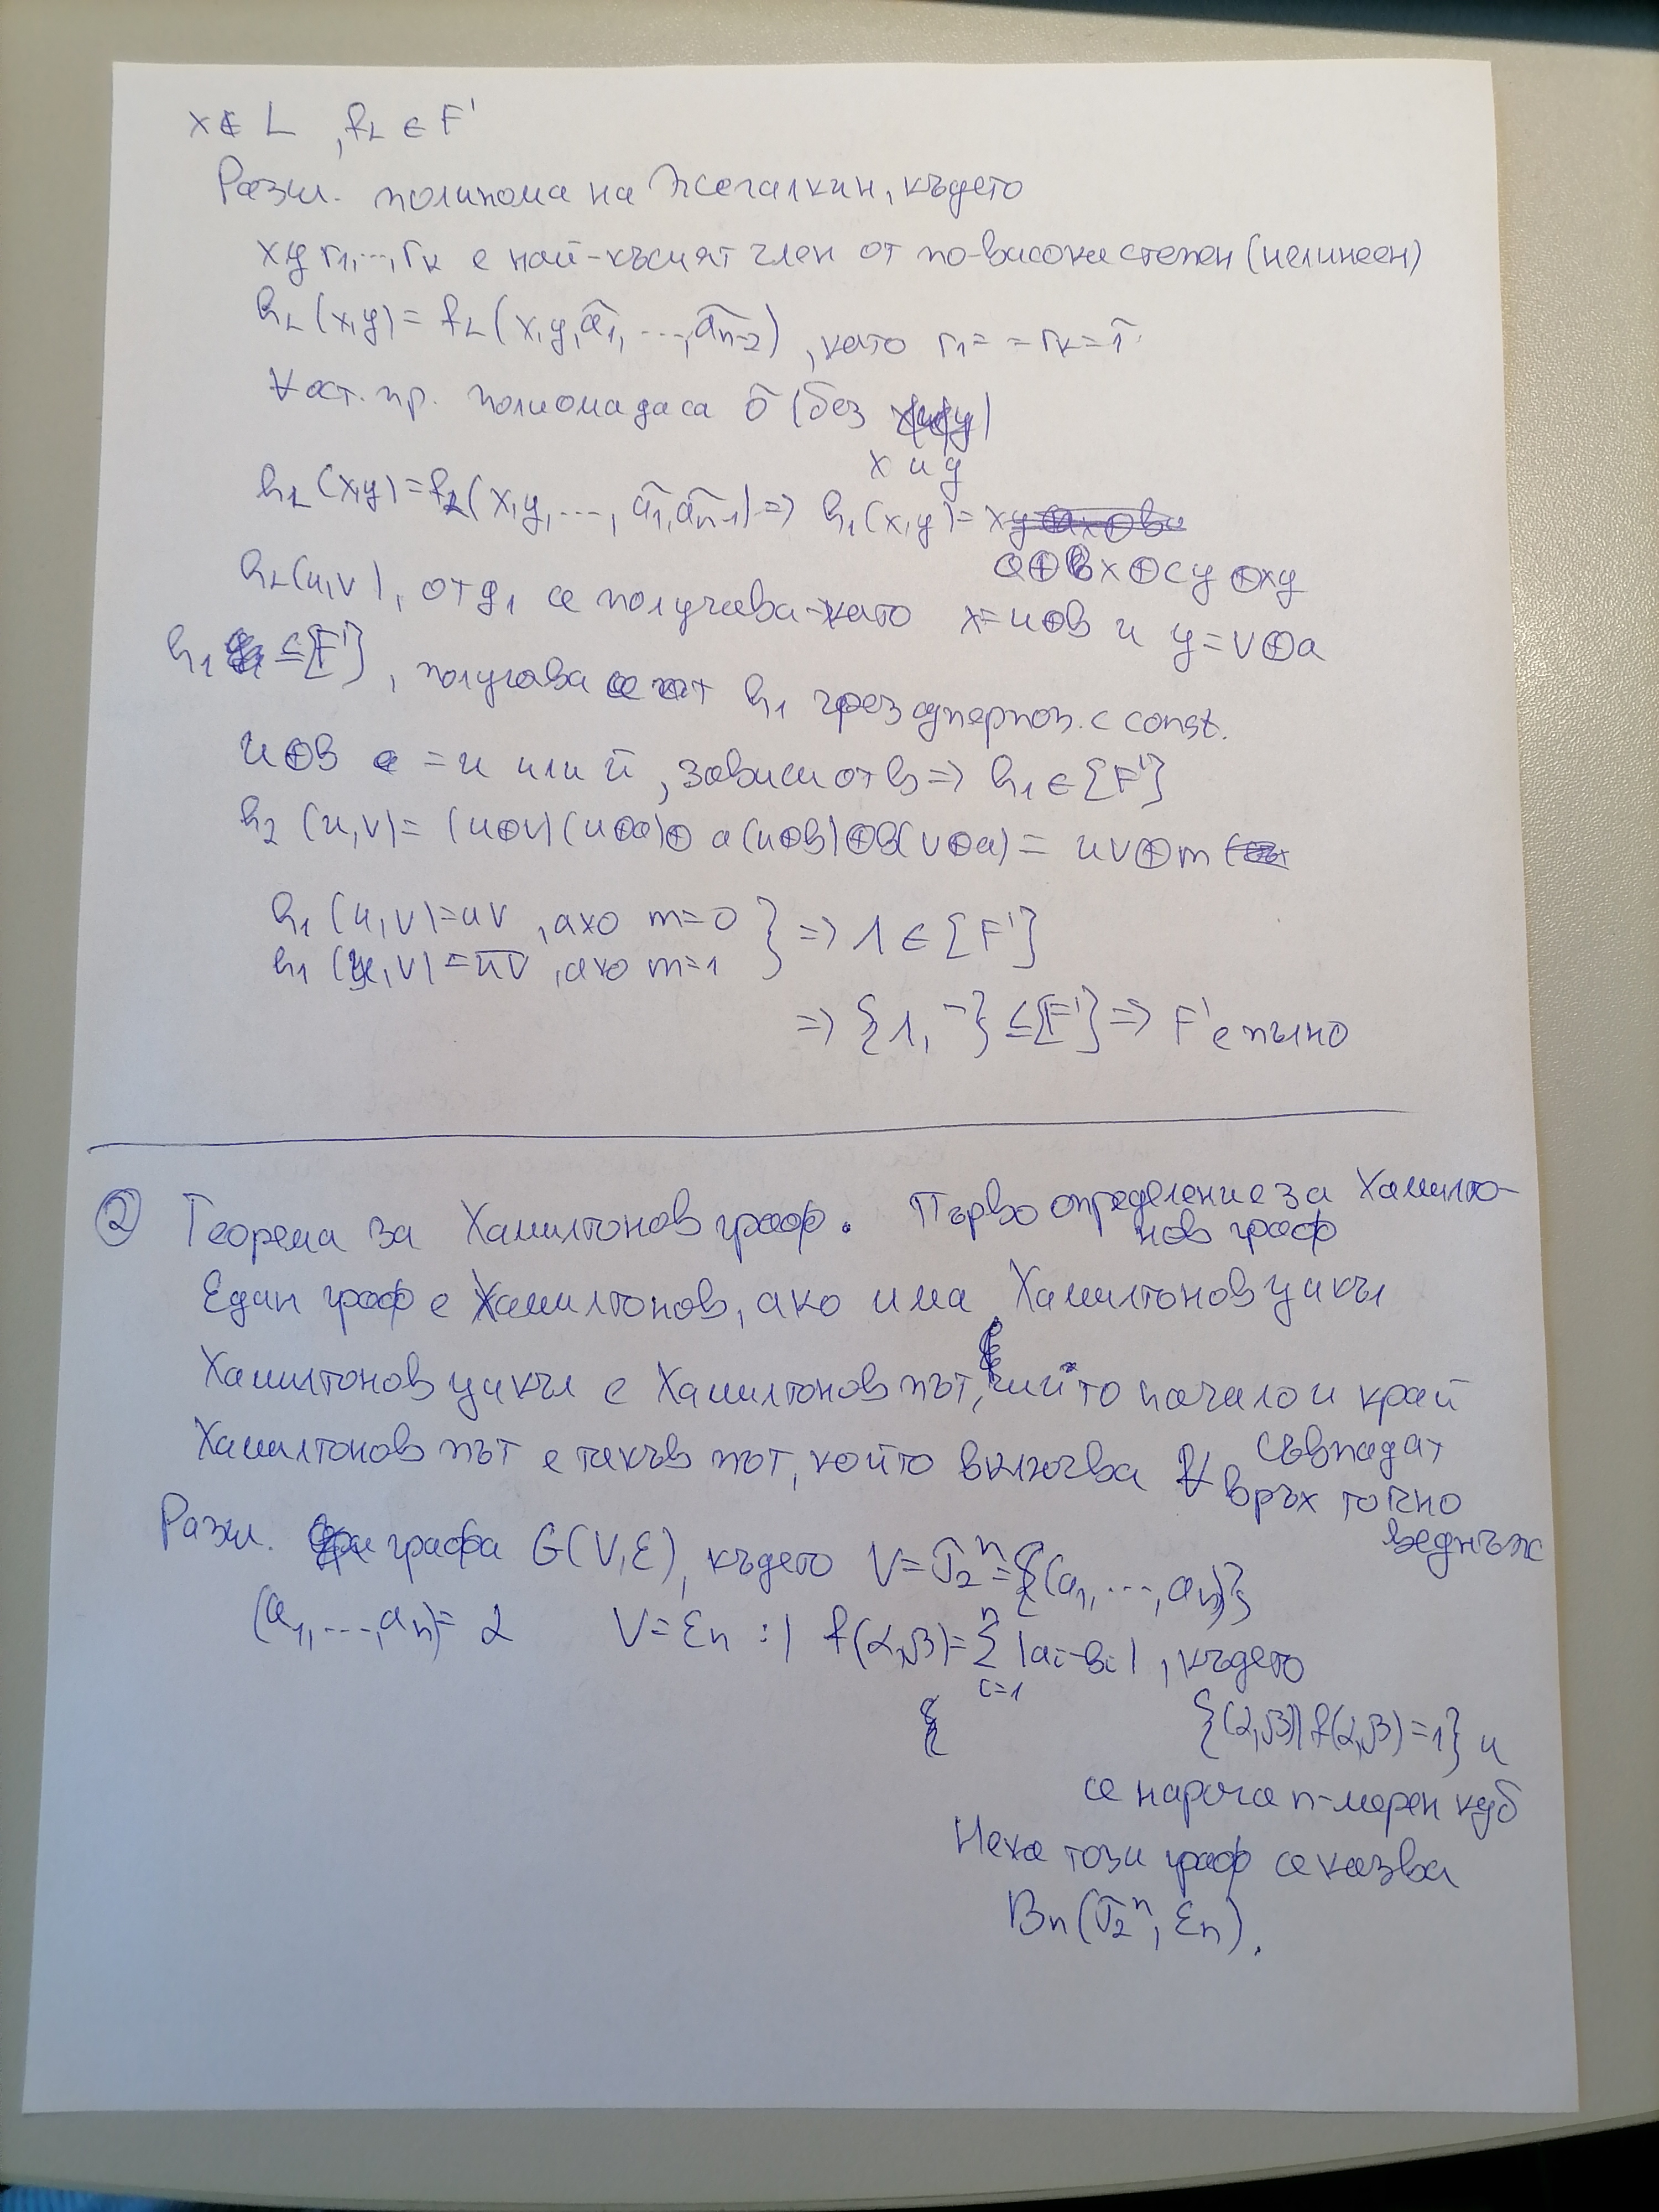 x∉ L , f_L ∈ F'
Разгл. полинома на Жегалкин, където
xy r₁,...,r_k е най-късият член от по-висока степен (нелинеен)
h_L (x,y) = f_L (x,y,ã₁, ...,ã_{n-2}) , като r₁= =r_k=1̃
∀ ост. пр. полиома да са õ (без
x и y
h_L (x,y)=f_L(x,y,..., ã₁,ã_{n-1}) => h₁(x,y)= xy
a⊕bx⊕cy⊕xy
h_L(u,v), от g₁ се получава като x=u⊕b и y=v⊕a
h₁ ⊆[F'] , получава се от h₁ чрез суперпоз. с const.
u⊕b = u или ū , зависи от b => h₁ ∈ [F']
h₂ (u,v)= (u⊕v)(u⊕a)⊕ a(u⊕b)⊕b(v⊕a) = uv⊕m
h₁ (u,v)=uv , ако m=0 } => 1 ∈ [F']
h₁ (u,v) = \overline{uv} , ако m=1
=> {1, ¯} ⊆[F'] => F' е пълно
② Теорема за Хамилтонов граф. Първо определение за Хамилто-
нов граф
Един граф е Хамилтонов, ако има Хамилтонов цикъл
Хамилтонов цикъл е Хамилтонов път, чийто начало и край
съвпадат
Хамилтонов път е такъв път, който включва ∀ връх точно
веднъж
Разгл. графа G(V,E), където V=J₂ⁿ={(a₁,...,a_n)}
(a₁,...,a_n)= α V=E_n : | f(α,β)=∑_{i=1}^{n} |a_i-b_i| , където
{(α,β)| f(α,β)=1} и
се нарича n-мерен куб
Нека този граф се казва
B_n(J₂ⁿ, E_n).